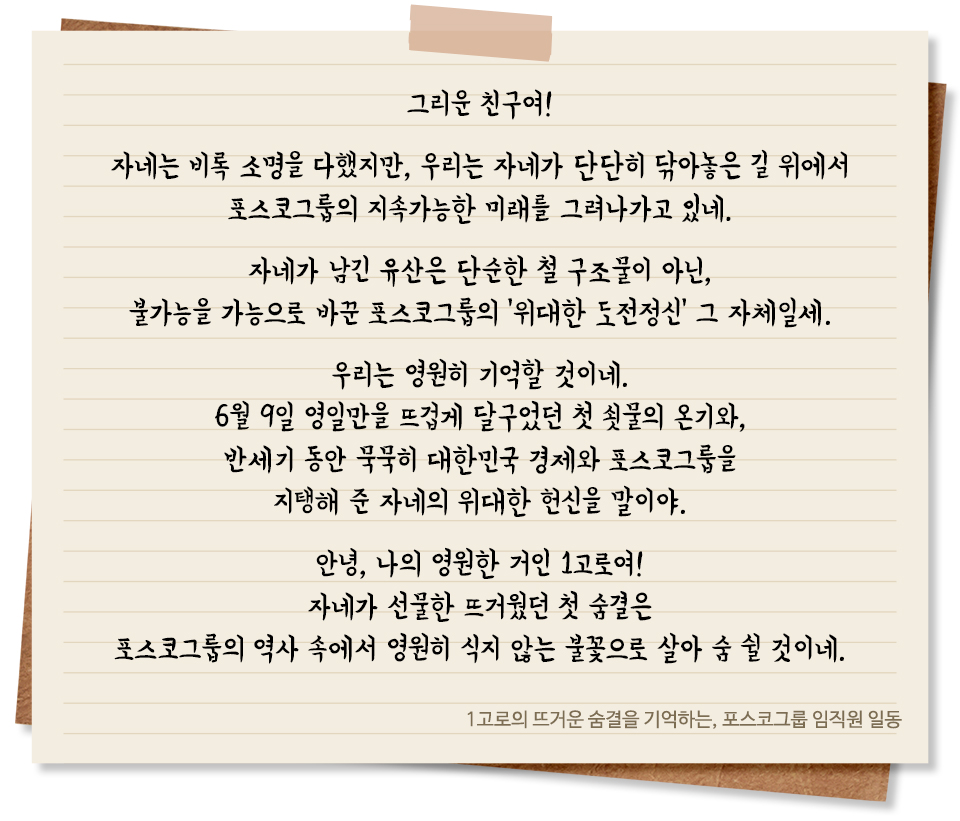 그리운 친구여!
자네는 비록 소명을 다했지만, 우리는 자네가 단단히 닦아놓은 길 위에서
포스코그룹의 지속가능한 미래를 그려나가고 있네.
자네가 남긴 유산은 단순한 철 구조물이 아닌,
불가능을 가능으로 바꾼 포스코그룹의 '위대한 도전정신' 그 자체일세.
우리는 영원히 기억할 것이네.
6월 9일 영일만을 뜨겁게 달구었던 첫 쇳물의 온기와,
반세기 동안 묵묵히 대한민국 경제와 포스코그룹을
지탱해 준 자네의 위대한 헌신을 말이야.
안녕, 나의 영원한 거인 1고로여!
자네가 선물한 뜨거웠던 첫 숨결은
포스코그룹의 역사 속에서 영원히 식지 않는 불꽃으로 살아 숨 쉴 것이네.
1고로의 뜨거운 숨결을 기억하는, 포스코그룹 임직원 일동